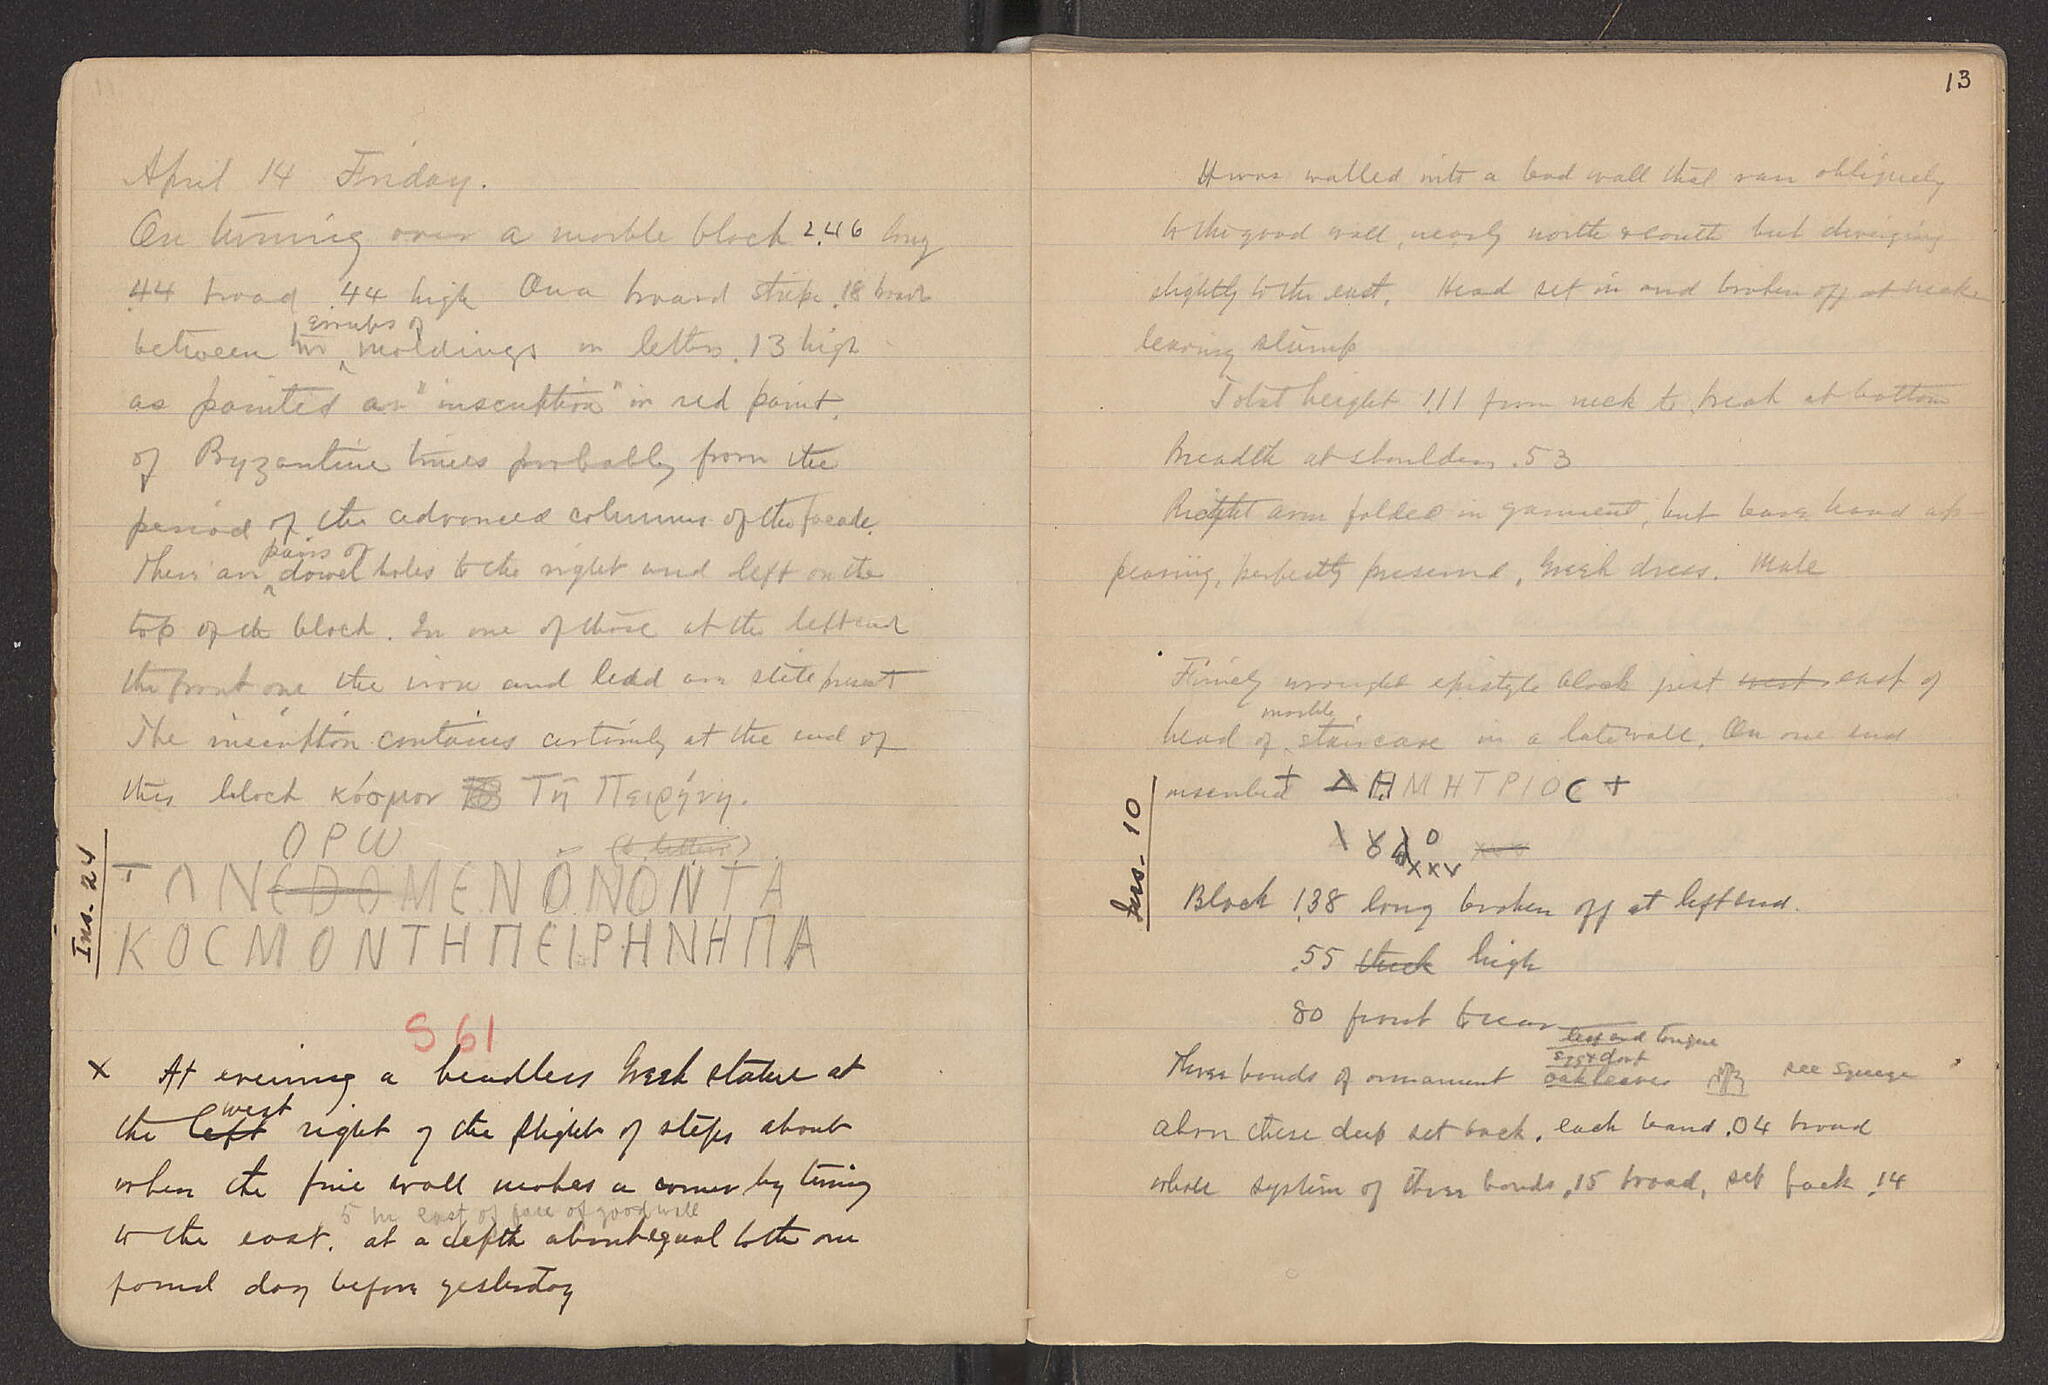 April 14 Friday.
On turning over a marble block 2.46 long
.44 broad .44 high On a broad stripe .18 broad
groups of
between two moldings in letters .13 high
as painted an "inscription" in red paint.
of Byzantine times probably from the
period of the advanced columns of the facade.
pairs of
There are dowel holes to the right and left on the
top of the block. In one of those at the left end
the front one the iron and lead are still present
The inscription contains certainly at the end of
this block κόσμον Τη Πειρήνη.
ΟΡω
(2 letters)
Ins. 24
ΤΛΝЄDOΜЄΝΟΝΟΝΤΑ
ΚΟCΜΟΝΤΗΠЄΙΡΗΝΗΠΑ
S 61
x At evening a headless Greek statue at
west
the left right of the flight of steps about
when the fine wall makes a corner by turning
5 m east of face of good wall
to the east. at a depth about equal to the one
found day before yesterday
13
It was walled into a bad wall that ran obliquely
to the good wall, nearly north & south but diverging
slightly to the east. Head set in and broken off at neck
leaving stump
Total height 1.11 from neck to break at bottom
Breadth at shoulders .53
Right arm folded in garment, but bare hand ap-
pearing, perfectly preserved, Greek dress. Male
Finely wrought epistyle block just west east of
marble
head of staircase in a late wall. On one end
Ins. 10
inscribed + ΔΗΜΗΤΡΙΟC +
Block 1.38 long broken off at left end.
.55 thick high
80 front to rear
leaf and tongue
egg & dart
Three bands of ornament oak leaves see squeeze
above these deep set back. each band .04 broad
whole system of three bands .15 broad, set back .14